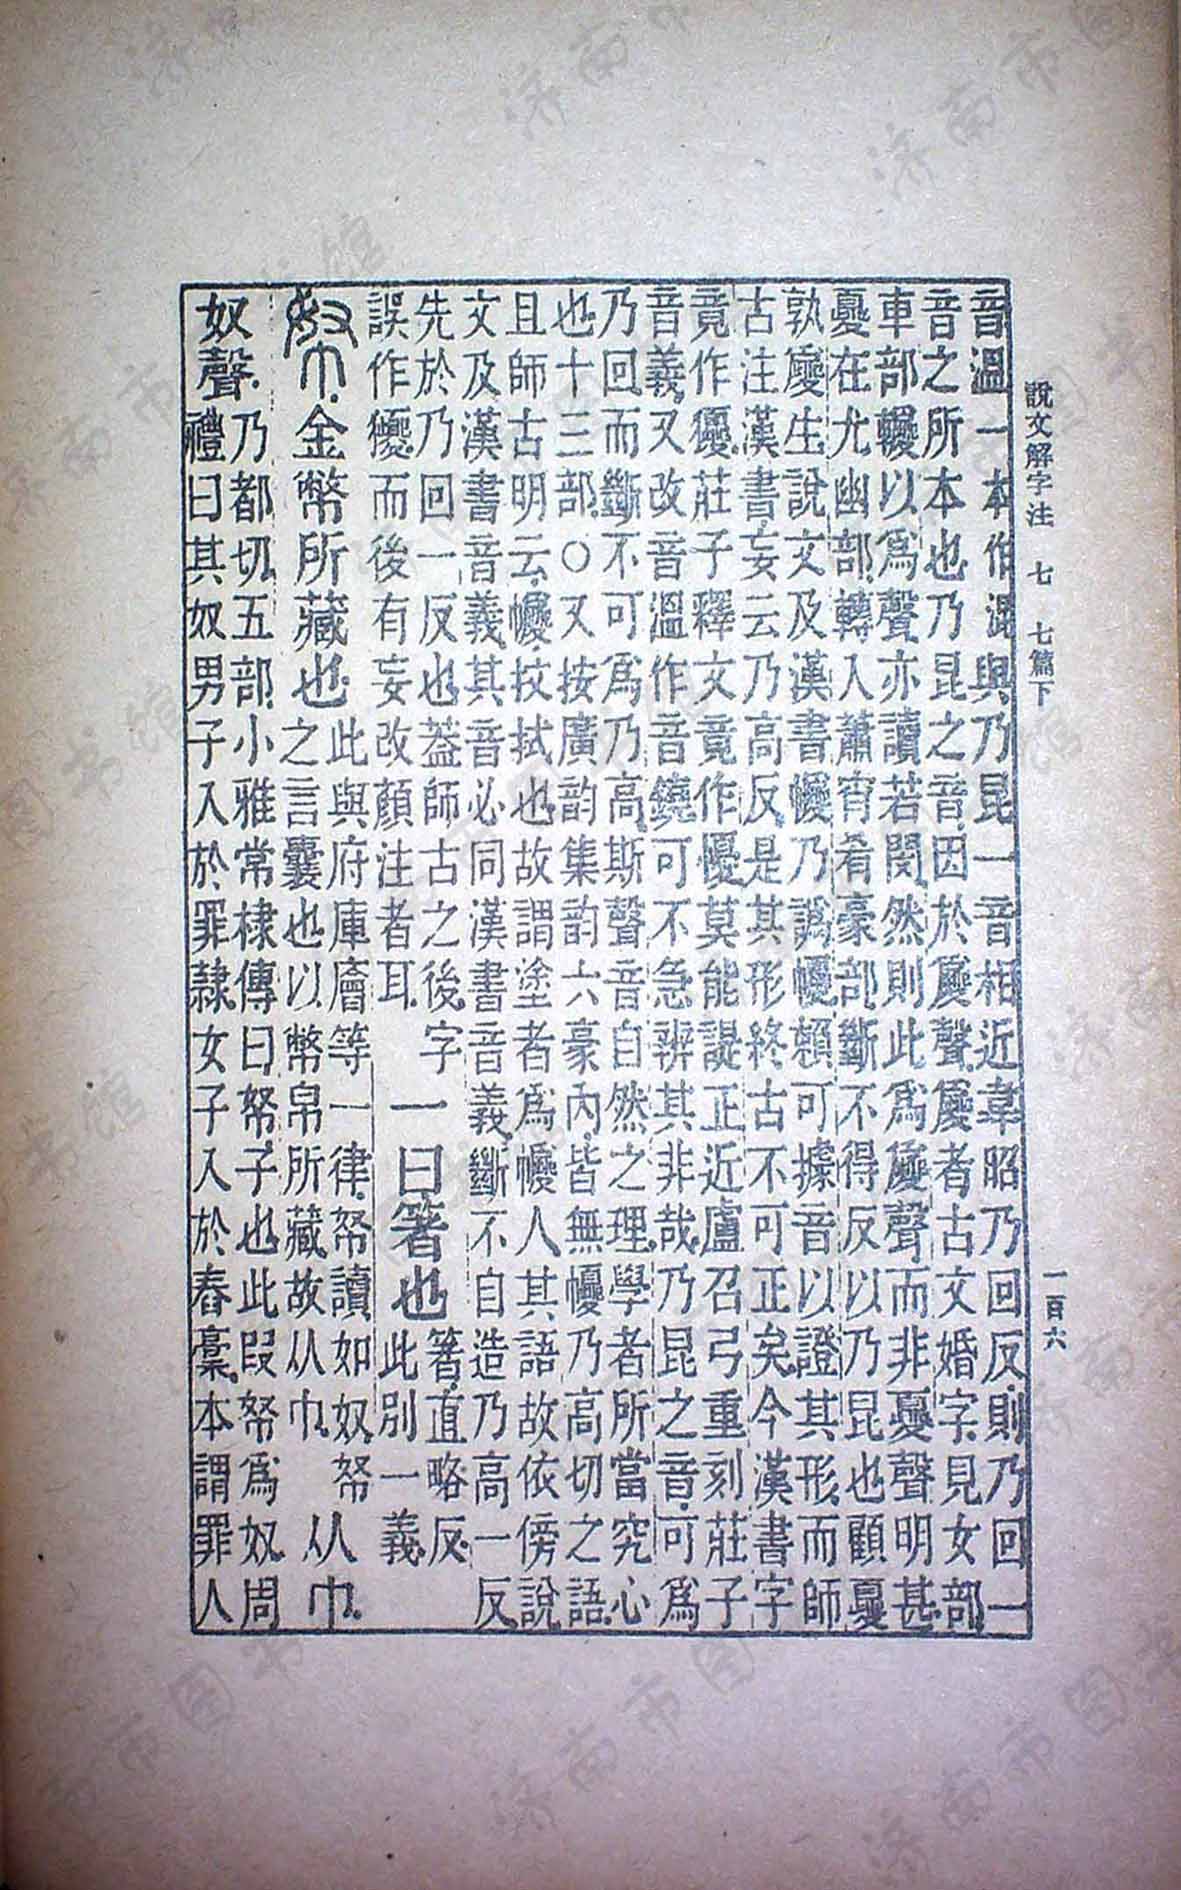 說文解字注 七 七篇下 一百六
音溫一本作混與乃昆一音相近韋昭乃回反則乃回一
音之所本也乃昆之音因於聲者古文婚字見女部
車部以爲聲亦讀若閔然則此爲聲而非夒聲明甚
夒在尤幽部轉入蕭宵肴豪部斷不得反以乃昆也顧夒
孰生說文及漢書乃譌賴可據音以證其形而師
古注漢書妄云乃高反是其形終古不可正矣今漢書字
竟作獿莊子釋文竟作莫能諟正近盧召弓重刻莊子
音義又改音溫作音鐃可不急辨其非哉乃昆之音可爲
乃回而斷不可爲乃高斯聲音自然之理學者所當究心
也十三部○又按廣韵集韵六豪內皆無乃高切之語
且師古明云抆拭也故謂塗者爲人其語故依傍說
文及漢書音義其音必同漢書音義斷不自造乃高一反
先於乃回一反也葢師古之後字
誤作獿而後有妄改顏注者耳
一曰箸也
箸直略反
此別一義
帑金幣所藏也
此與府庫廥等一律帑讀如奴帑
之言囊也以幣帛所藏故从巾
从巾
奴聲
乃都切五部小雅常棣傳曰帑子也此叚帑爲奴周
禮曰其奴男子入於罪隸女子入於舂稾本謂罪人